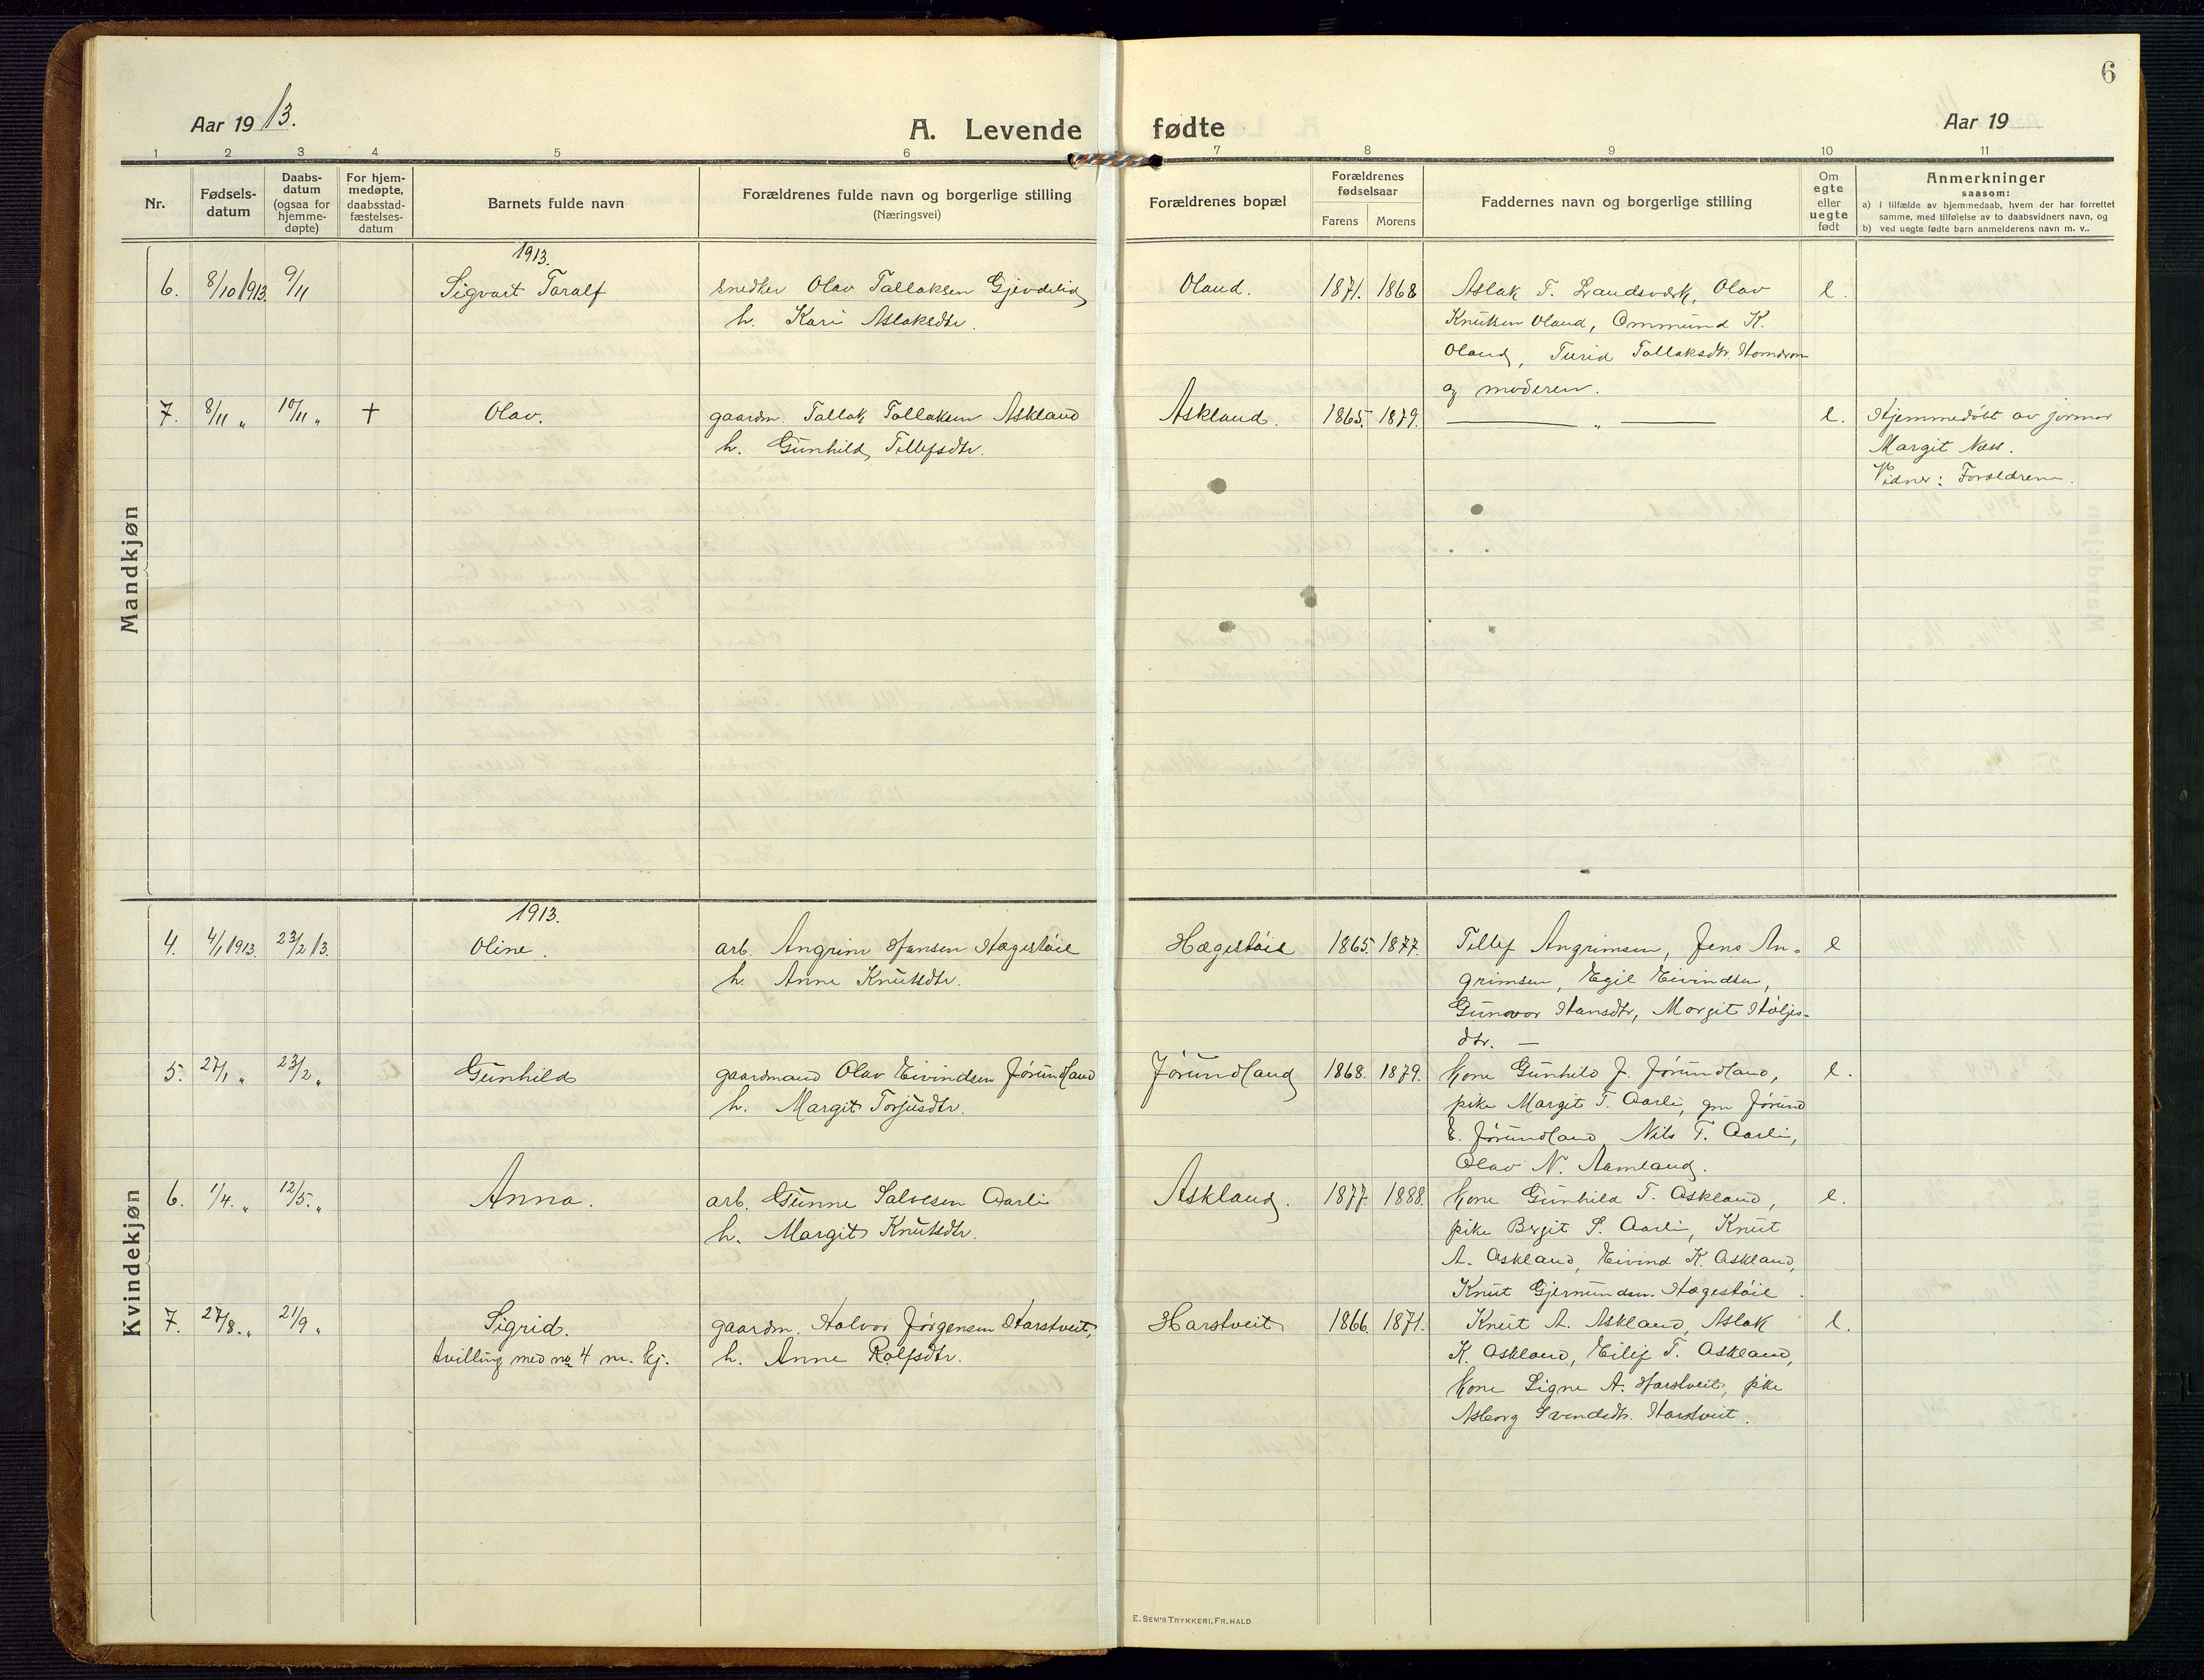 6
Aar 19 13.
A. Levende fødte
Aar 19
1 2 3 4 5 6 7 8 9 10 11
Nr.
Fødsels-
datum
Daabs-
datum
(ogsaa for
hjemme-
døpte)
For hjem-
medøpte,
daabsstad-
fæstelses-
datum
Barnets fulde navn
Forældrenes fulde navn og borgerlige stilling
(Næringsvei)
Forældrenes bopæl
Forældrenes
fødselsaar
Farens Morens
Faddernes navn og borgerlige stilling
Om
egte
eller
uegte
født
Anmerkninger
saasom:
a) i tilfælde av hjemmedaab, hvem der har forrettet
samme, med tilføielse av to daabsvidners navn, og
b) ved uegte fødte barn anmelderens navn m. v..
Mandkjøn
1913.
6. 8/10 1913. 9/11 Sigvart Taralf snedker Olav Tallaksen Gjevdelid Oland. 1871. 1868 Aslak T. Landsverk, Olav e.
h. Kari Aslaksdtr. Knutsen Oland, Ommund K.
Oland, Turid Tallaksdtr. Homdrom
og moderen.
7. 8/11 " 10/11 " † Olav. gaardm. Tallak Tallaksen Askland Askland. 1865. 1879. — " — e. Hjemmedøbt av jormor
h. Gunhild Tellefsdtr. Margit Næss.
Vidner: Forældrene.
Kvindekjøn
1913.
4. 4/1 1913. 23/2 13. Oline. arb. Angrim Hansen Hægestøil Hægestøil 1865. 1877. Tellef Angrimsen, Jens An- e
h. Anne Knutsdtr. grimsen, Egil Eivindsen,
Gunvor Hansdtr, Margit Høljes-
dtr. —
5. 27/1 " 23/2 " Gunhild gaardmand Olav Eivindsen Jørundland Jørundland 1868. 1879. Kone Gunhild J. Jørundland, e.
h. Margit Torjusdtr. pike Margit T. Aarli, gm Jørund
E. Jørundland, Nils T. Aarli,
Olav N. Aamland.
6. 1/4. " 12/5. " Anna. arb. Gunne Salvesen Aarli Askland. 1877. 1888. Kone Gunhild T. Askland, e.
h. Margit Knutsdtr. pike Bergit S. Aarli, Knut
A. Askland, Eivind K. Askland,
Knut Gjermundsen Hægestøil.
7. 27/8. " 21/9 " Sigrid. gaardm. Halvor Jørgensen Harstveit, Harstveit 1866. 1871. Knut A. Askland, Aslak e.
tvilling med no 4 m. kj. h. Anne Rolfsdtr. K. Askland, Eilef T. Askland,
Kone Signe A. Harstveit, pike
Asborg Svendsdtr. Harstveit.
E. Sem's Trykkeri, Fr.hald